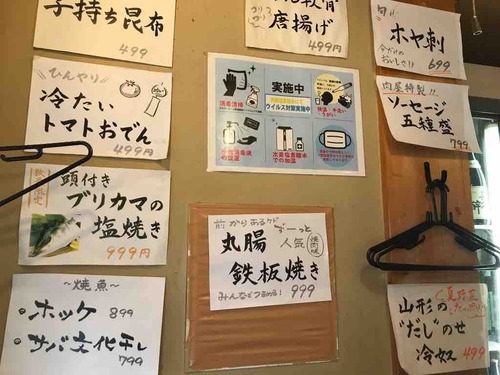 子持ち昆布
499
ひんやり
冷たい
トマトおでん
499円
頭付き
ブリカマの
塩焼き
999円
～焼魚～
・ホッケ 899
・サバ文化干し
799
唐揚げ
499円
実施中
ウイルス対策実施中
消毒清掃
前からあるケド
ずーっと
人気
丸腸
鉄板焼き
みんなでつまめる!
999
旬
ホヤ刺
今だけの
おいしさ
699
肉屋特製!!
ソーセージ
五種盛
799
山形の
"だし"のせ
冷奴 499